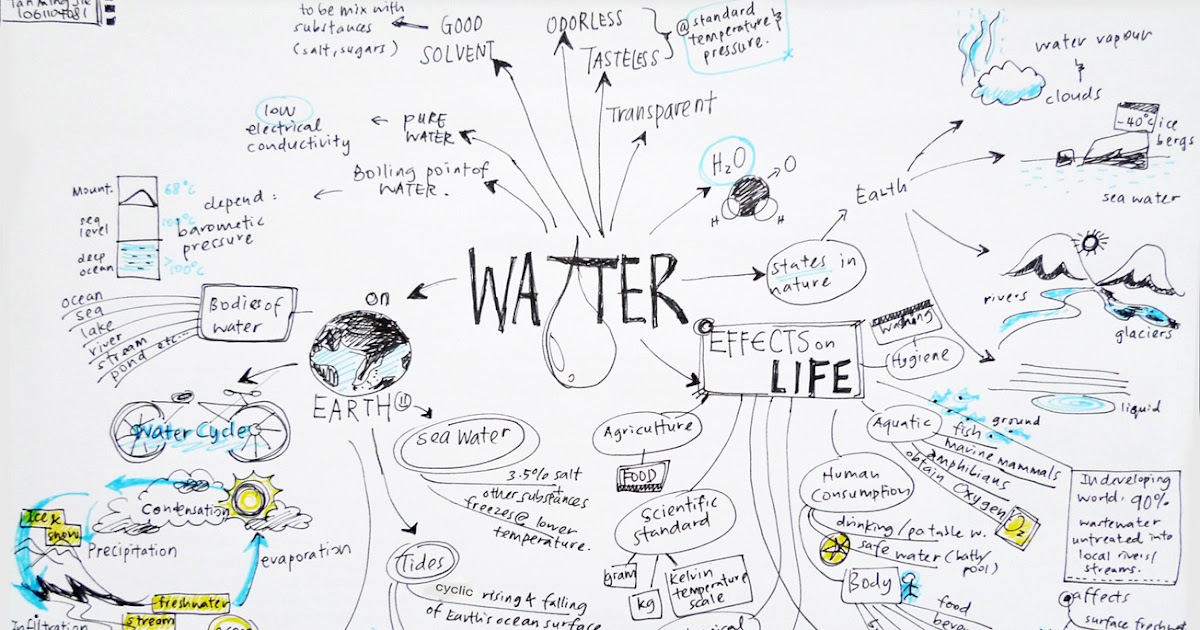 106110T081
to be mix with
substances
(salt, sugars)
GOOD
SOLVENT
ODORLESS
TASTELESS
@ standard
temperature &
pressure.
Transparent
low
electrical
conductivity
PURE
WATER
Boiling point of
WATER.
depend:
barometic
pressure
Mount.
68°C
sea
level
100°C
deep
ocean
>100°C
H2O
O
H
H
water vapour
&
clouds
-40°C
ice
bergs
sea water
Earth
states in
nature
rivers
glaciers
liquid
ground
WATER
on
EARTH
Bodies of
water
ocean
sea
lake
river
stream
pond etc...
Water Cycle
Condensation
Ice &
snow
Precipitation
evaporation
freshwater
stream
Infiltration
sea water
3.5% salt
other substances
freezes @ lower
temperature.
Tides
cyclic rising & falling
of Earth's ocean surface
EFFECTS on
LIFE
washing
Hygiene
Agriculture
FOOD
Scientific
standard
gram
kg
Kelvin
temperature
scale
Human
Consumption
drinking/potable w.
safe
water (bath/
pool)
Body
food
Aquatic
fish
marine mammals
amphibians
obtain Oxygen
O2
In developing
world, 90%
wastewater
untreated into
local rivers/
streams.
affects
surface freshwat